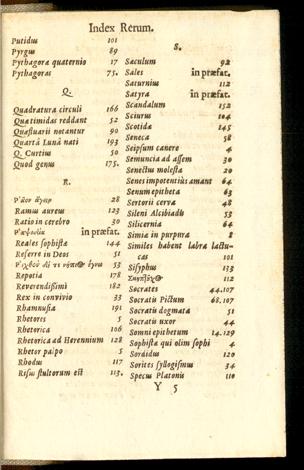 Index Rerum.
Putidus 101
Pyrgus 89
Pythagoræ quaternio 17
Pythagoras 75.
Q.
Quadratura circuli 166
Quæ timidas reddant 52
Quæstuarij notantur 90
Quartâ Lunâ nati 193
Q. Curtius 50
Quod genus 175.
R.
28
Ramus aureus 123
Ratio in cerebro 30
in præfat.
Reales sophistæ 144
Referre in Deos 51
53
Repotia 178
Reverendissimi 182
Rex in convivio 33
Rhamnusia 191
Rhetores 5
Rhetorica 106
Rhetorica ad Herennium 128
Rhetor palpo 5
Rhodus 117
Risus stultorum est 113.
S.
Saculum 92
Sales in præfat.
Saturnius 112
Satyra in præfat.
Scandalum 152
Sciurus 104
Scotida 145
Seneca 58
Seipsum canere 4
Semuncia ad assem 30
Senectus molesta 20
Senes impotentius amant 64
Senum epitheta 63
Sertorii cerva 48
Sileni Alcibiadis 53
Silicernia 64
Simia in purpura 8
Similes habent labra lactu-
cas 101
Sisyphus 133
112
Socrates 44.107
Socratis Pictum 68.107
Socratis dogmata 51
Socratis uxor 44
Somni epithetum 14.129
Sophistæ qui olim sophi 4
Soraidus 120
Sorites syllogismus 34
Specus Platonis 110
Y 5